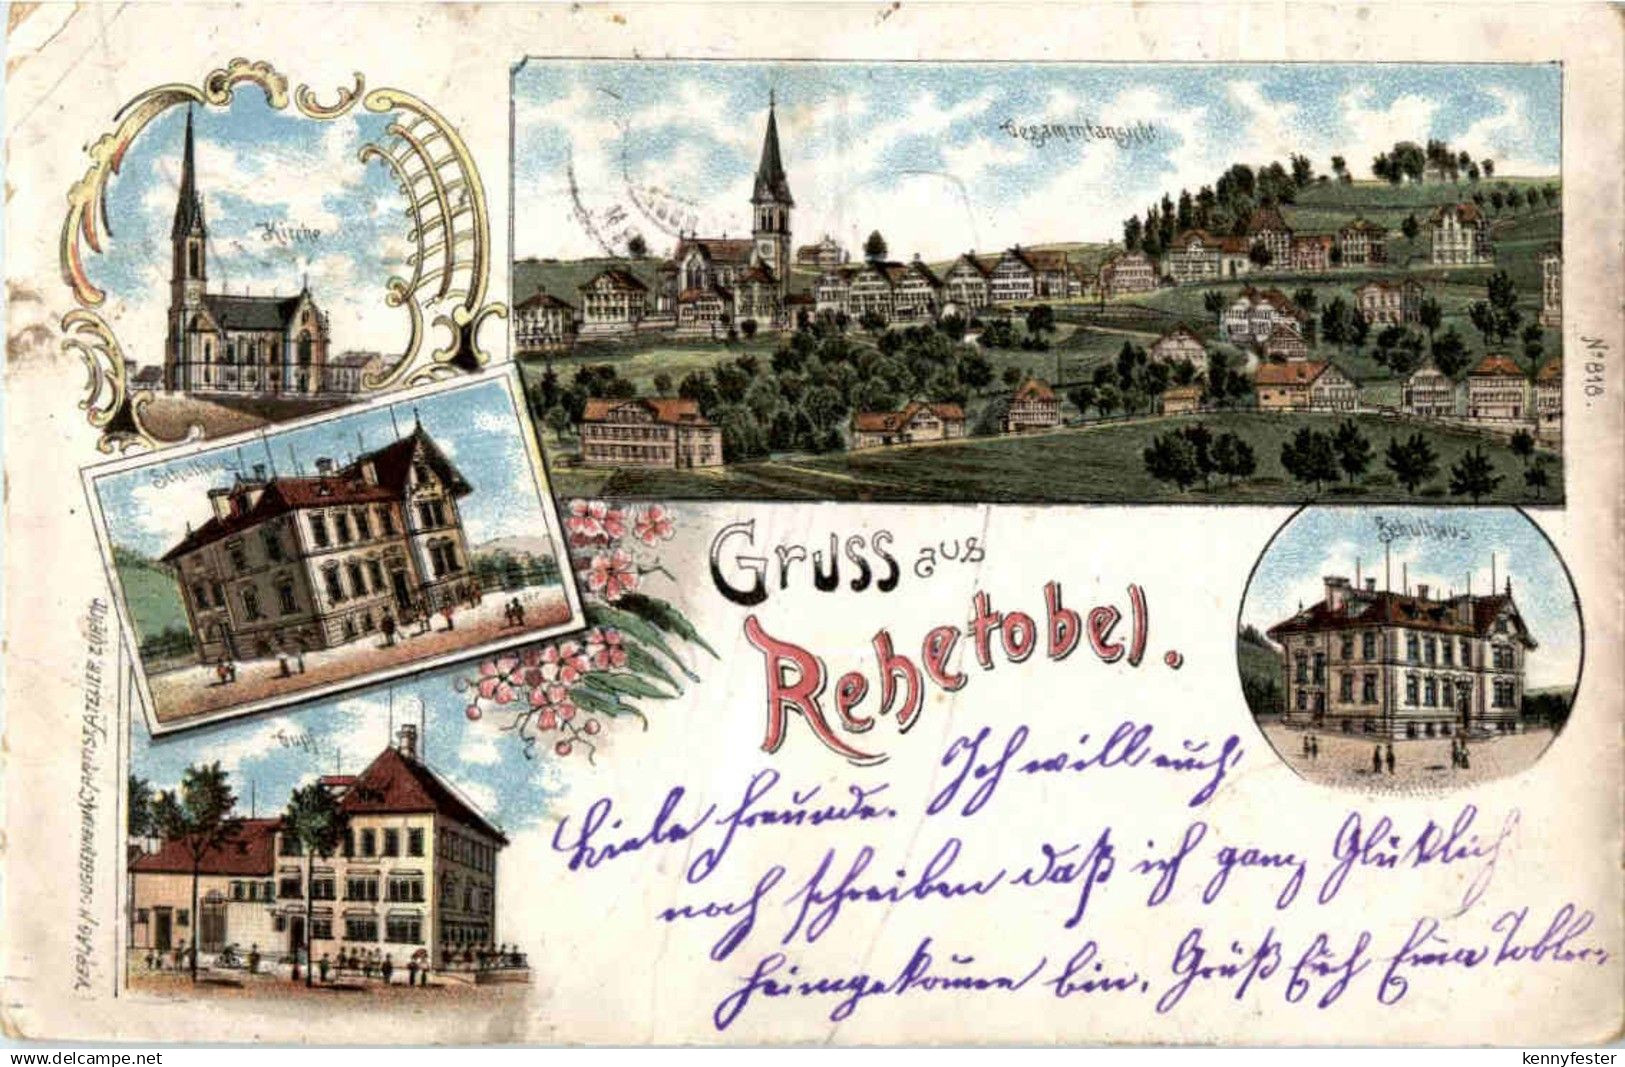 Gesammtansicht
Kirche
Schulhaus
Schulhaus
Gupf
Gruss aus
Rehetobel.
No 818.
VERLAG H. GUGGENHEIM & Co, ARTIST. ATELIER, ZÜRICH.
Liebe Freunde. Ich will euch
noch schreiben daß ich ganz Glüklich
heimgekommen bin. Grüß Euch Emma Tobler.
www.delcampe.net
kennyfester